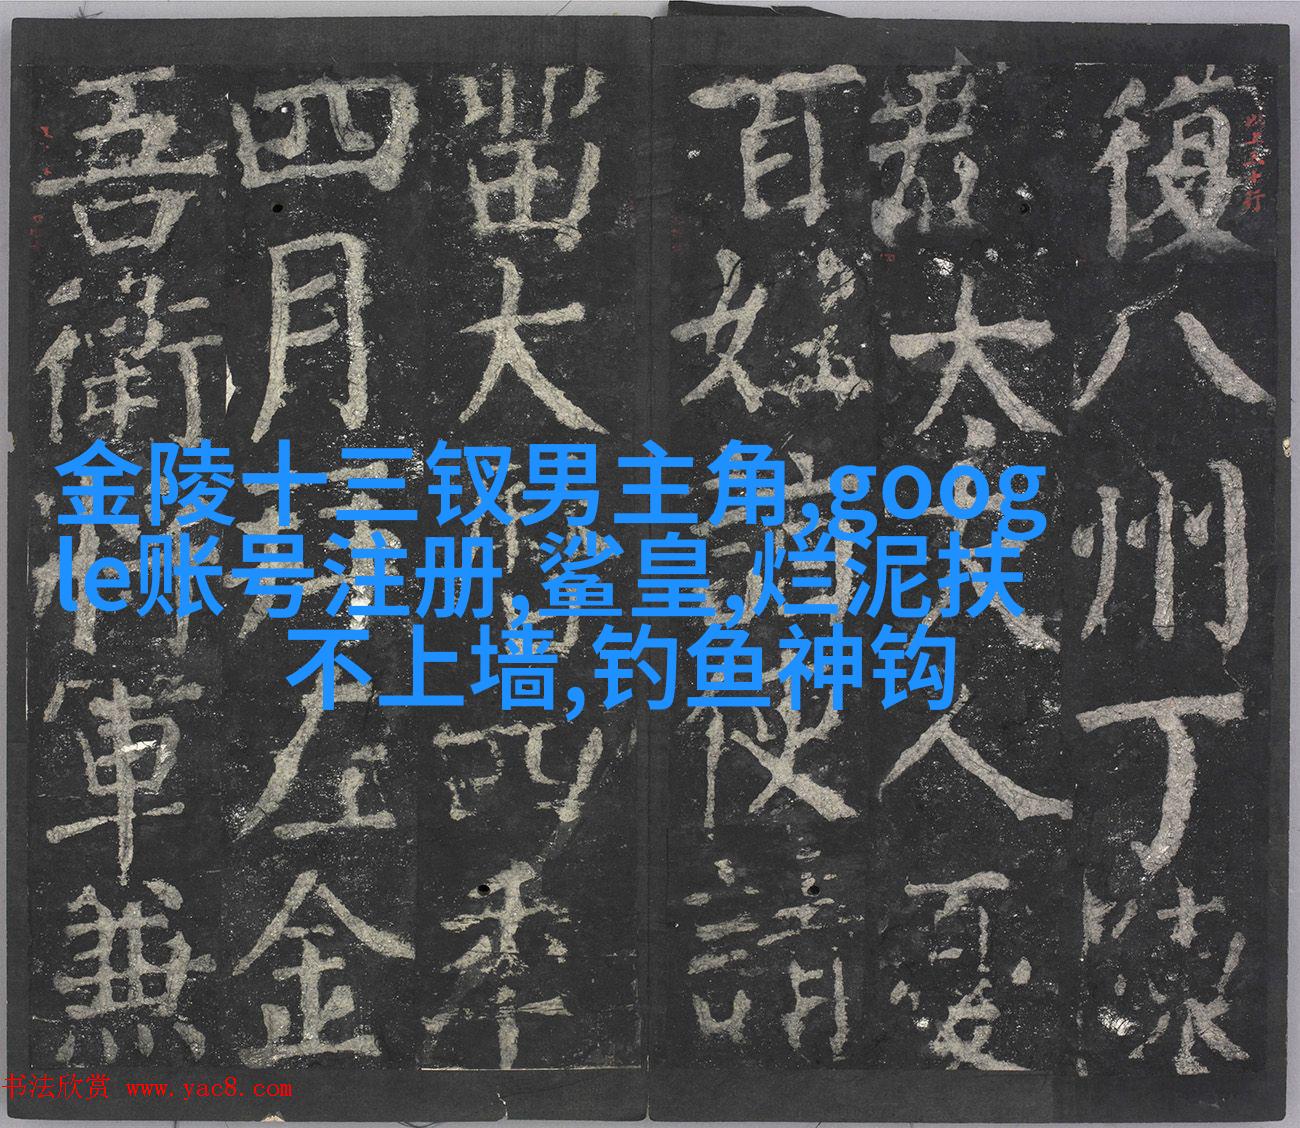 復八州丁
君太夫人憂
百姓請使請
留大四年
四月拜左金
吾衛將軍兼
金陵十三钗男主角,goog
le账号注册,鲨皇,烂泥扶
不上墙,钓鱼神钩
书法欣赏 www.yac8.com